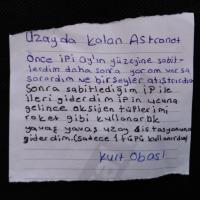 Uzayda kalan Astronot
Önce ipi ay'ın yüzeyine sabit-
lerdim daha sonra yaram varsa
sarardım ve bir şeyler atıştırırdım
Sonra sabitlediğim ip ile
ileri giderdim ipin ucuna
gelince oksijen tüplerimi
roket gibi kullanarak
yavaş yavaş uzay istasyonuna
giderdim (sadece 1 tüpü kullanırdım)
Kurt Obası